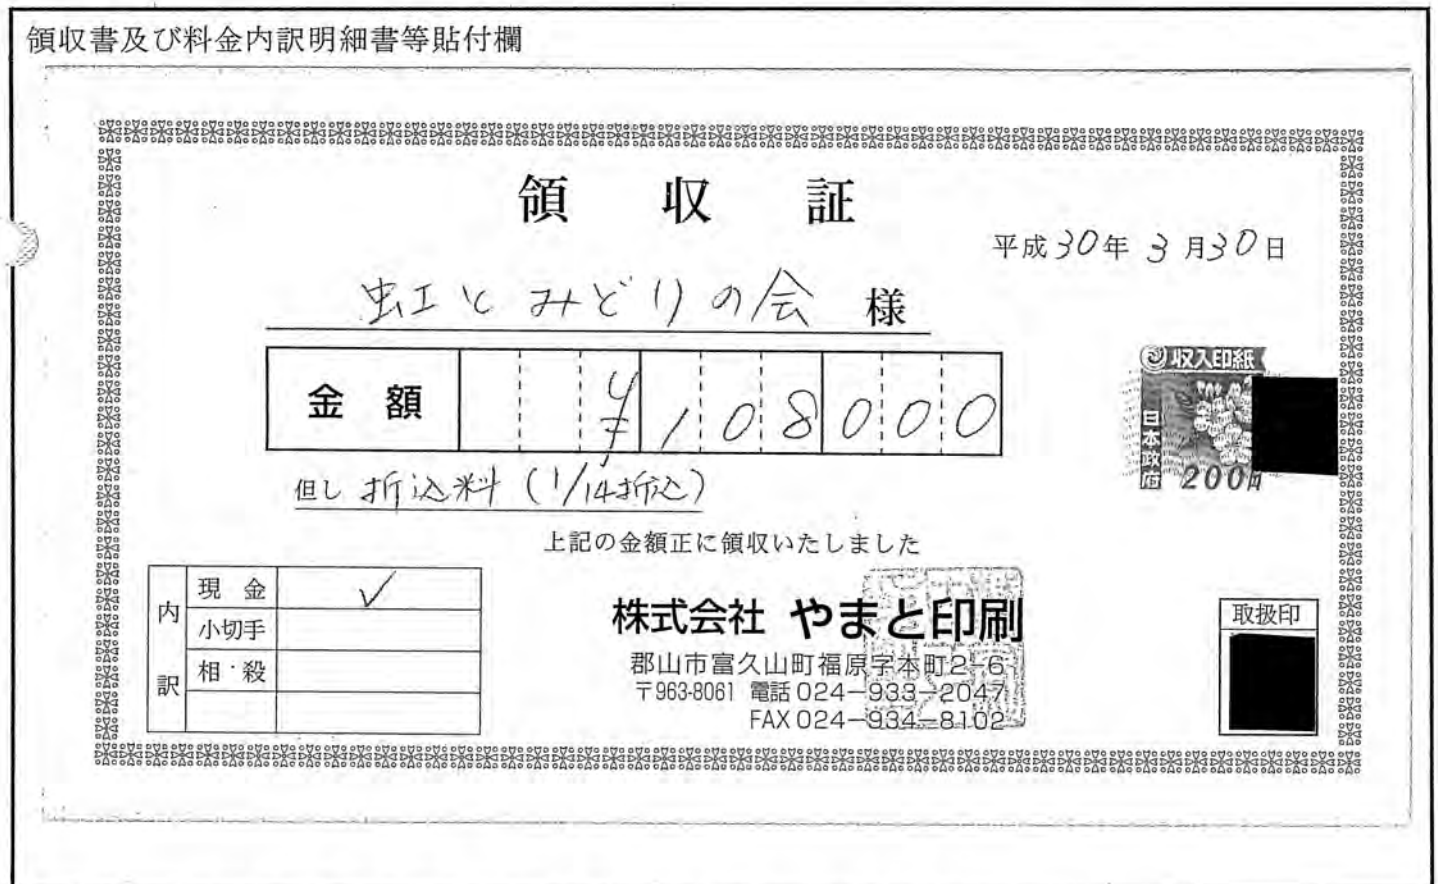 領収書及び料金内訳明細書等貼付欄
領収証
平成30年3月30日
虹とみどりの会 様
金額 ¥108000
但し 折込料 (1/14折込)
上記の金額正に領収いたしました
収入印紙
日本政府
200円
内訳
現金 ✓
小切手
相殺
株式会社 やまと印刷
郡山市富久山町福原字本町2-6
〒963-8061 電話 024-933-2047
FAX 024-934-8102
取扱印